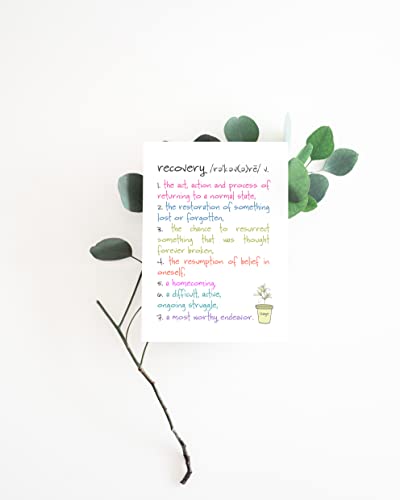 recovery /rəˈkəv(ə)rē/ v.
1. the act, action and process of
returning to a normal state,
2. the restoration of something
lost or forgotten,
3. the chance to resurrect
something that was thought
forever broken,
4. the resumption of belief in
oneself,
5. a homecoming,
6. a difficult, active,
ongoing struggle,
7. a most worthy endeavor.